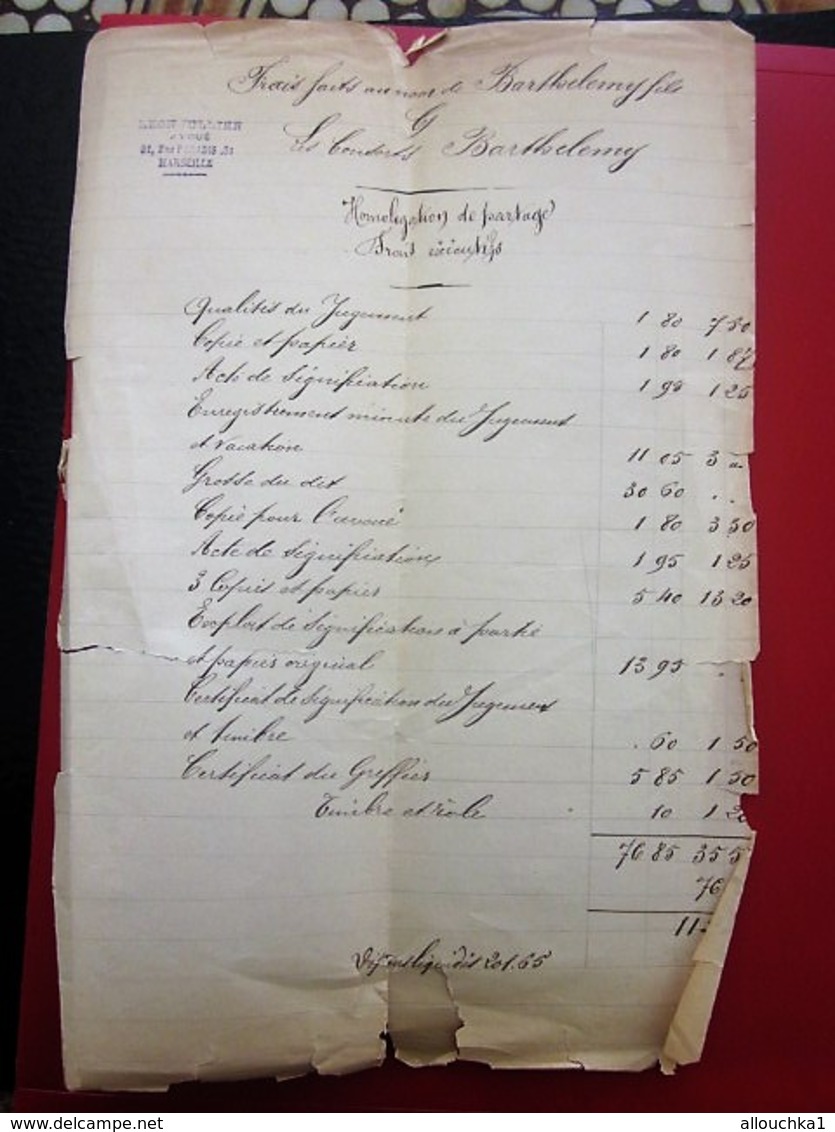 Frais faits au nom de Barthelemy fils
C
Les Consorts Barthelemy
LEON JULLIEN
AVOUÉ
MARSEILLE
Homologation de partage
Frais exécutifs
Qualités du Jugement 1 80 7 50
Copie et papier 1 80 1 87
Acte de signification 1 90 1 25
Enregistrement minute du Jugement
et vacation 11 05 3 "
Grosse du dit 30 60 . .
Copie pour l'avoué 1 80 3 30
Acte de signification 1 95 1 25
3 Copies et papiers 5 40 13 20
Exploit de signification à partie
et papier original 13 95 .
Certificat de signification du Jugement
et timbre . 60 1 50
Certificat du Greffier 5 85 1 50
Timbre et rôle 10 1 20
76 85 35 5
76
11
Dépens liquidés 201.65
www.delcampe.net
allouchka1